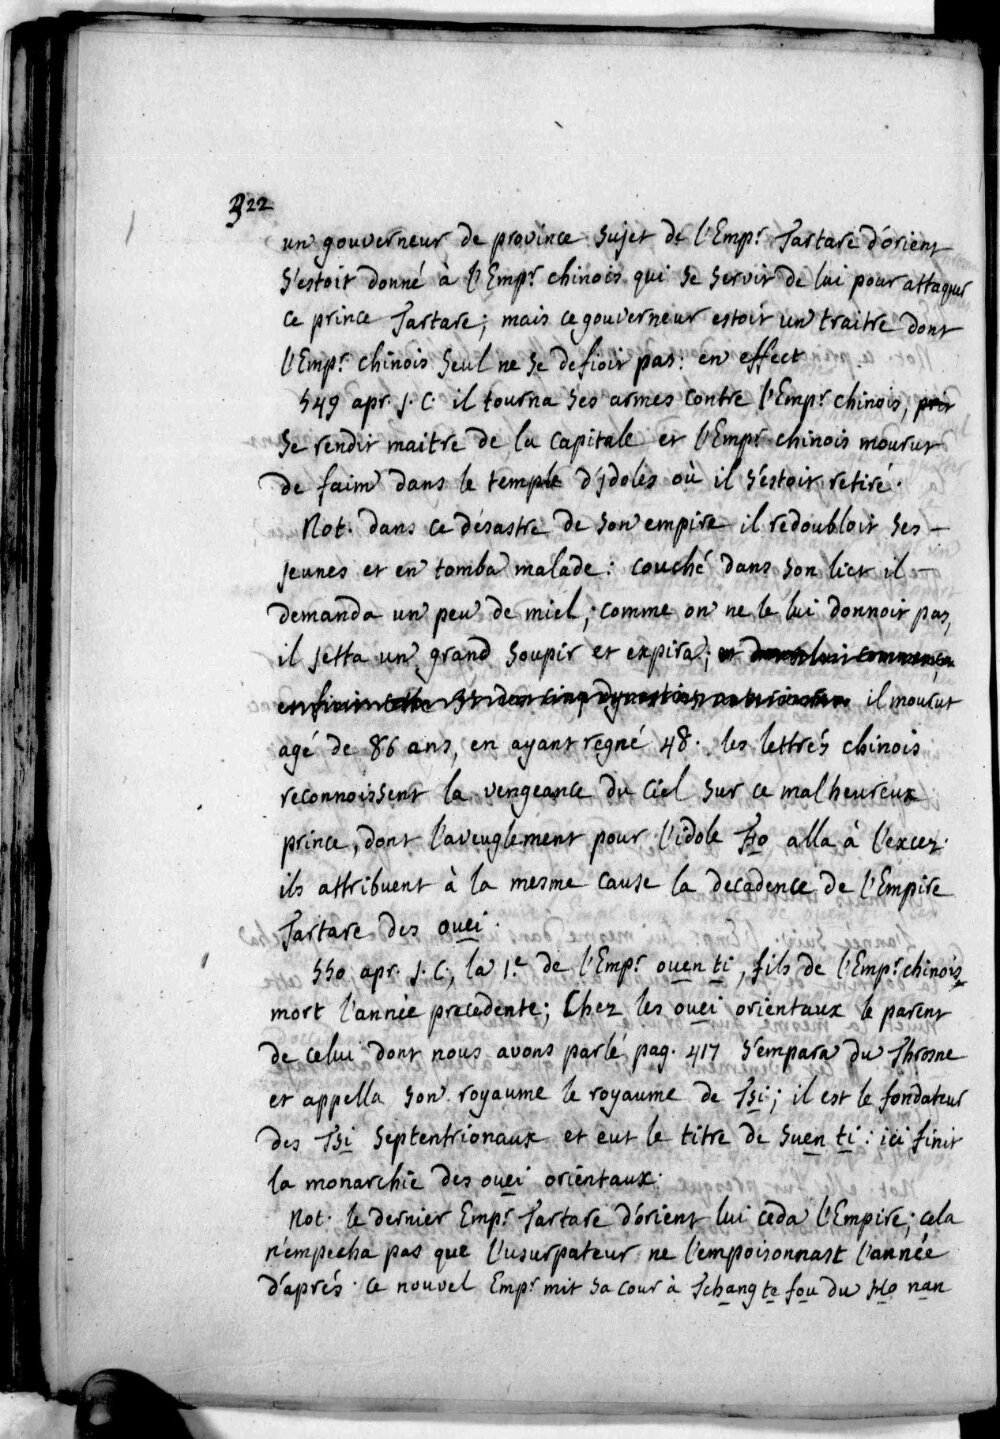 322
un gouverneur de province sujet de l'Emp.r Tartare d'orient
s'estoit donné à l'Emp.r chinois qui se servit de lui pour attaquer
ce prince Tartare; mais ce gouverneur estoit un traitre dont
l'Emp.r chinois seul ne se defioit pas: en effect
549 apr. J. C. il tourna ses armes contre l'Emp.r chinois,
se rendit maitre de la capitale et l'Emp.r chinois mourut
de faim dans le temple d'jdoles où il s'estoit retiré.
Not. dans ce désastre de son empire il redoubloit ses -
jeunes et en tomba malade: couché dans son lict il -
demanda un peu de miel; comme on ne le lui donnoit pas,
il jetta un grand soupir et expira;
il mourut
agé de 86 ans, en ayant regné 48. les lettrés chinois
reconnoissent la vengeance du Ciel sur ce malheureux
prince, dont l'aveuglement pour l'idole Fo alla à l'excez.
ils attribuent à la mesme cause la decadence de l'Empire
Tartare des ouei.
550 apr. J. C., la 1.e de l'Emp.r ouen ti, fils de l'Emp.r chinois
mort l'année precedente; Chez les ouei orientaux le parent
de celui dont nous avons parlé pag. 417 s'empara du Throsne
et appella son royaume le royaume de Tsi; il est le fondateur
des Tsi septentrionaux et eut le titre de suen ti: ici finit
la monarchie des ouei orientaux.
Not. le dernier Emp.r Tartare d'orient lui ceda l'Empire; cela
n'empecha pas que l'usurpateur ne l'empoisonnast l'année
d'après. ce nouvel Emp.r mit sa cour à Tchang te fou du Ho nan